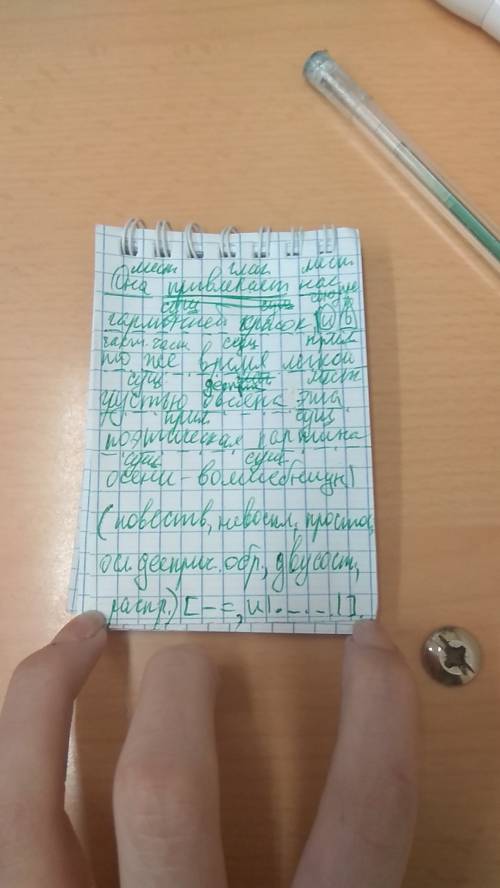 мест. глаг. мест.
Она привлекает нас
сущ сущ союз
гармонией красок (и в
част. част. сущ прил
то же время лёгкой
сущ мест
грустью овеяна эта
прил сущ
поэтическая картина
сущ сущ
осени - волшебницы)
(повеств, невоскл, простое,
осл. дееприч. обр., двусост,
распр.) [- =, и |. _ . _ . |].